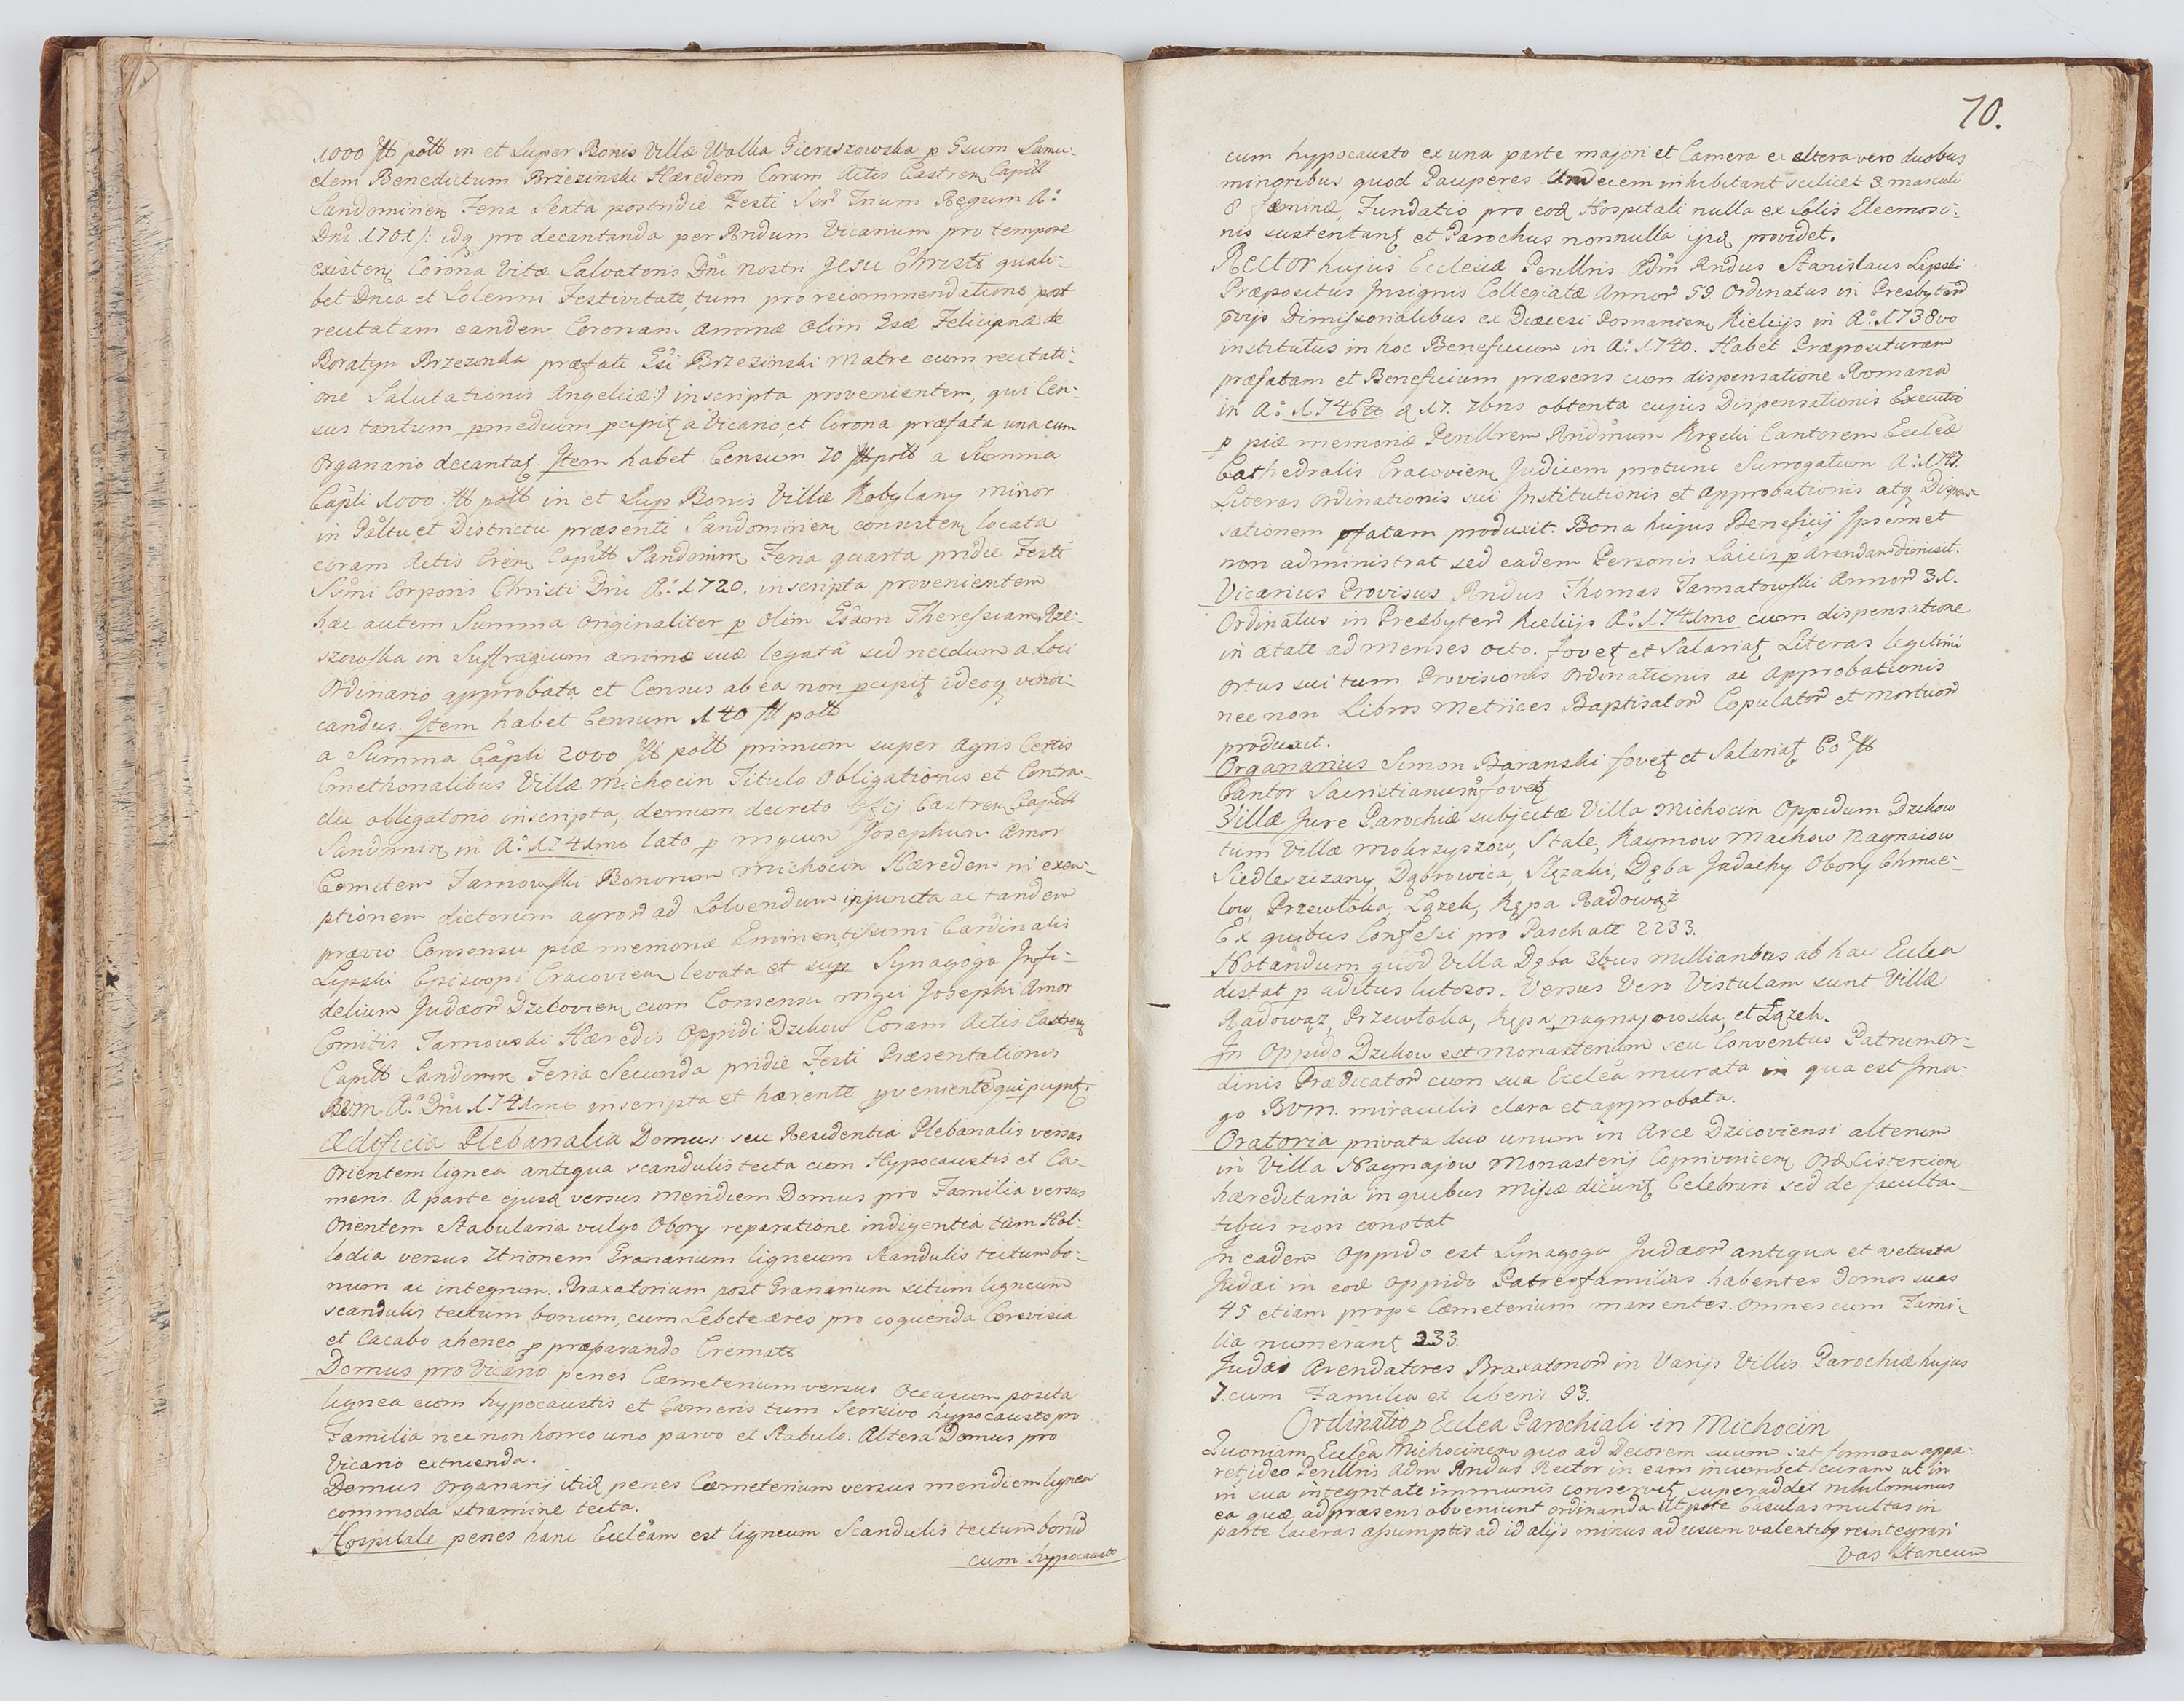 1000 fl poll in et super Bonis Villæ Walka Gieraszowska p Gsum Samu-
elem Benedictum Brzezinski Hæredem Coram Actis Castren Capitl
Sandominen Feria Sexta postridie Festi SSr Trium Regum Aº
Dni 1701 /: idq pro decantanda per Rndum Vicarium pro tempore
existen Corona Vitæ Salvatoris Dni nostri Jesu Christi quali-
bet Dnica et Solenni Festivitate, tum pro recommendatione post
recitatam eandem Coronam animæ olim Gsæ Felicianæ de
Boratyn Brzezinska præfati Gsi Brzezinski Matre cum recitati-
one Salutationis Angelicæ:/ inscripta provenientem, qui Cen-
sus tantum p medium pcipit a Vicario, et Corona præfata una cum
Organario decantat. Item habet Censum 70 fl poll a Summa
Capli 1000 fl poll in et sup Bonis Villæ Kobylany minor
in Paltu et Districtu præsenti Sandominen consisten locata
coram Actis Cren Capitl Sandomin Feria quarta pridie Festi
SSmi Corporis Christi Dni Aº 1720. inscripta provenientem
hac autem Summa originaliter p olim Gsam Theressiam Rze-
szowska in Suffragium animæ suæ legata sed necdum a Loci
Ordinario approbata et Census ab ea non pcipit ideoq vindi-
candus. Item habet Censum 140 fl poll
a Summa Capli 2000 fl poll primum super Agris Certis
Cmethonalibus Villæ Michocin Titulo Obligationis et Contra-
ctu obligatorio inscripta, demum decreto Offij Castren Capitl
Sandomir in Aº 1741mo lato p mgcum Josephum Amor
Comitem Tarnowski Bonorum Michocin Hæredem in exem-
ptionem dictorum agror ad Solvendum injuncta ac tandem
prævio Consensu piæ memoriæ Eminentissimi Cardinalis
Lipski Episcopi Cracovien levata et sup Synagoga Infi-
delium Judæor Dzicovien cum Consensu mgci Josephi Amor
Comitis Tarnowski Hæredis Oppidi Dzikow Coram Actis Castren
Capitl Sandomir Feria Secunda pridie Festi Præsentationis
BVM Aº Dni 1741mo inscripta et hærente pveniente qui pcipit
Ædificia Plebanalia Domus seu Residentia Plebanalis versus
Orientem lignea antiqua scandulis tecta cum Hypocaustis et Ca-
meris. A parte ejusd versus Meridiem Domus pro Familia versus
Orientem Stabularia vulgo Obory reparatione indigentia tum Hol-
lodia versus 7trionem Granarium ligneum Scandulis tectum bo-
num ac integrum. Braxatorium post Granarium situm ligneum
scandulis tectum bonum, cum Lebete æreo pro coquenda Cerevisia
et Cacabo aheneo p præparando Cremato
Domus pro Vicario penes Cæmeterium versus Occasum posita
lignea cum hypocaustis et Cameris tum Seorsivo hypocausto pro
Familia nec non horreo uno parvo et Stabulo. Altera Domus pro
Vicario extruenda.
Domus Organarij itid penes Cæmeterium versus meridiem lignea
commoda stramine tecta.
Hospitale penes hanc Ecclesam est ligneum Scandulis tectum bonu
cum hypocausto
70.
cum hypocausto ex una parte majori et Camera ex altera vero duobus
minoribus quod Pauperes Undecem inhabitant scilicet 3 masculi
8 fæminæ, Fundatio pro eod Hospitali nulla ex Solis Eleemosi-
nis sustentant et Parochus nonnulla ipis providet.
Rector hujus Ecclesiæ Perillris Adm Rndus Stanislaus Lipski
Præpositus Insignis Collegiatæ Annor 59. Ordinatus in Presbyter
pvijs Dimissorialibus ex Diæcesi Posnanien Kielcijs in Aº 1738vo
institutus in hoc Beneficium in Aº 1740. Habet Præposituram
præfatam et Beneficium præsens cum dispensatione Romana
in Aº 1746to d 17. 7bris obtenta cujus Dispensationis Executio
p piæ memoriæ Perillrem Rndmum Krzelii Cantorem Eccleæ
Cathedralis Cracovien Judicem protunc Surrogatum Aº 1747.
Literas Ordinationis sui Institutionis et Approbationis atq Dispen-
sationem pfatam produxit. Bona hujus Beneficij Ipsemet
non administrat sed eadem Personis Laicis p arendam dimisit.
Vicarius Provisus Rndus Thomas Tarnatowski Annor 31.
Ordinatus in Presbyter Kielcijs Aº 1741mo cum dispensatione
in ætate ad menses octo. fovet et Salariat Literas legitimi
ortus sui tum Provisionis Ordinationis ac Approbationis
nec non Libros Metrices Baptisator Copulator et Mortuor
produxit.
Organarius Simon Baranski fovet et Salariat 60 fl
Cantor Sacristianum fovet
Villæ Jure Parochiæ subjectæ Villa Michocin Oppidum Dzikow
tum Villæ Mokrzyszow, Stale, Kaymow Machow Nagnaiow
Siedleszczany, Dąbrowica, Slęzaki, Dęba Jadachy Obory Chmie-
low, Przewłoka, Lązek, Kępa Radowąż
Ex quibus Confessi pro Paschate 2233.
Notandum quod Villa Dęba 3bus milliaribus ab hac Ecclea
distat p aditus lutosos. Versus Vero Vistulam sunt Villæ
Radowąz, Przewłoka, Kępa nagnajowska, et Lązek.
In Oppido Dzikow est Monasterium seu Conventus Patrum Or-
dinis Prædicator cum sua Ecclea murata in qua est Ima-
go BVM. miraculis clara et approbata.
Oratoria privata duo unum in Arce Dzicoviensi alterum
in Villa Nagnajow Monasterij Coprivnicen Ord Cistercien
hæreditaria in quibus Missæ dicunt Celebrari sed de faculta-
tibus non constat
In eadem Oppido est Synagoga Judæor antiqua et vetusta
Judæi in eod Oppido Patresfamilias habentes Domos suas
45 etiam prope Cæmeterium manentes. Omnes cum Fami-
lia numerant 233.
Judæi Arendatores Braxatorior in Varijs Villis Parochiæ hujus
7. cum Familia et liberis 93.
Ordinatio p Ecclea Parochiali in Michocin
Quoniam Ecclea Michocinen quo ad Decorem suum sat formosa appa-
ret, ideo Perillris Adm Rndus Rector in eam incumbet curam ut in
in sua integritate immunis conservet, superaddet nihilominus
ea quæ ad præsens obveniunt ordinanda Utpote Casulas multas in
parte laceras assumptis ad id alijs minus ad usum valentibq reintegrari
Vas Staneum